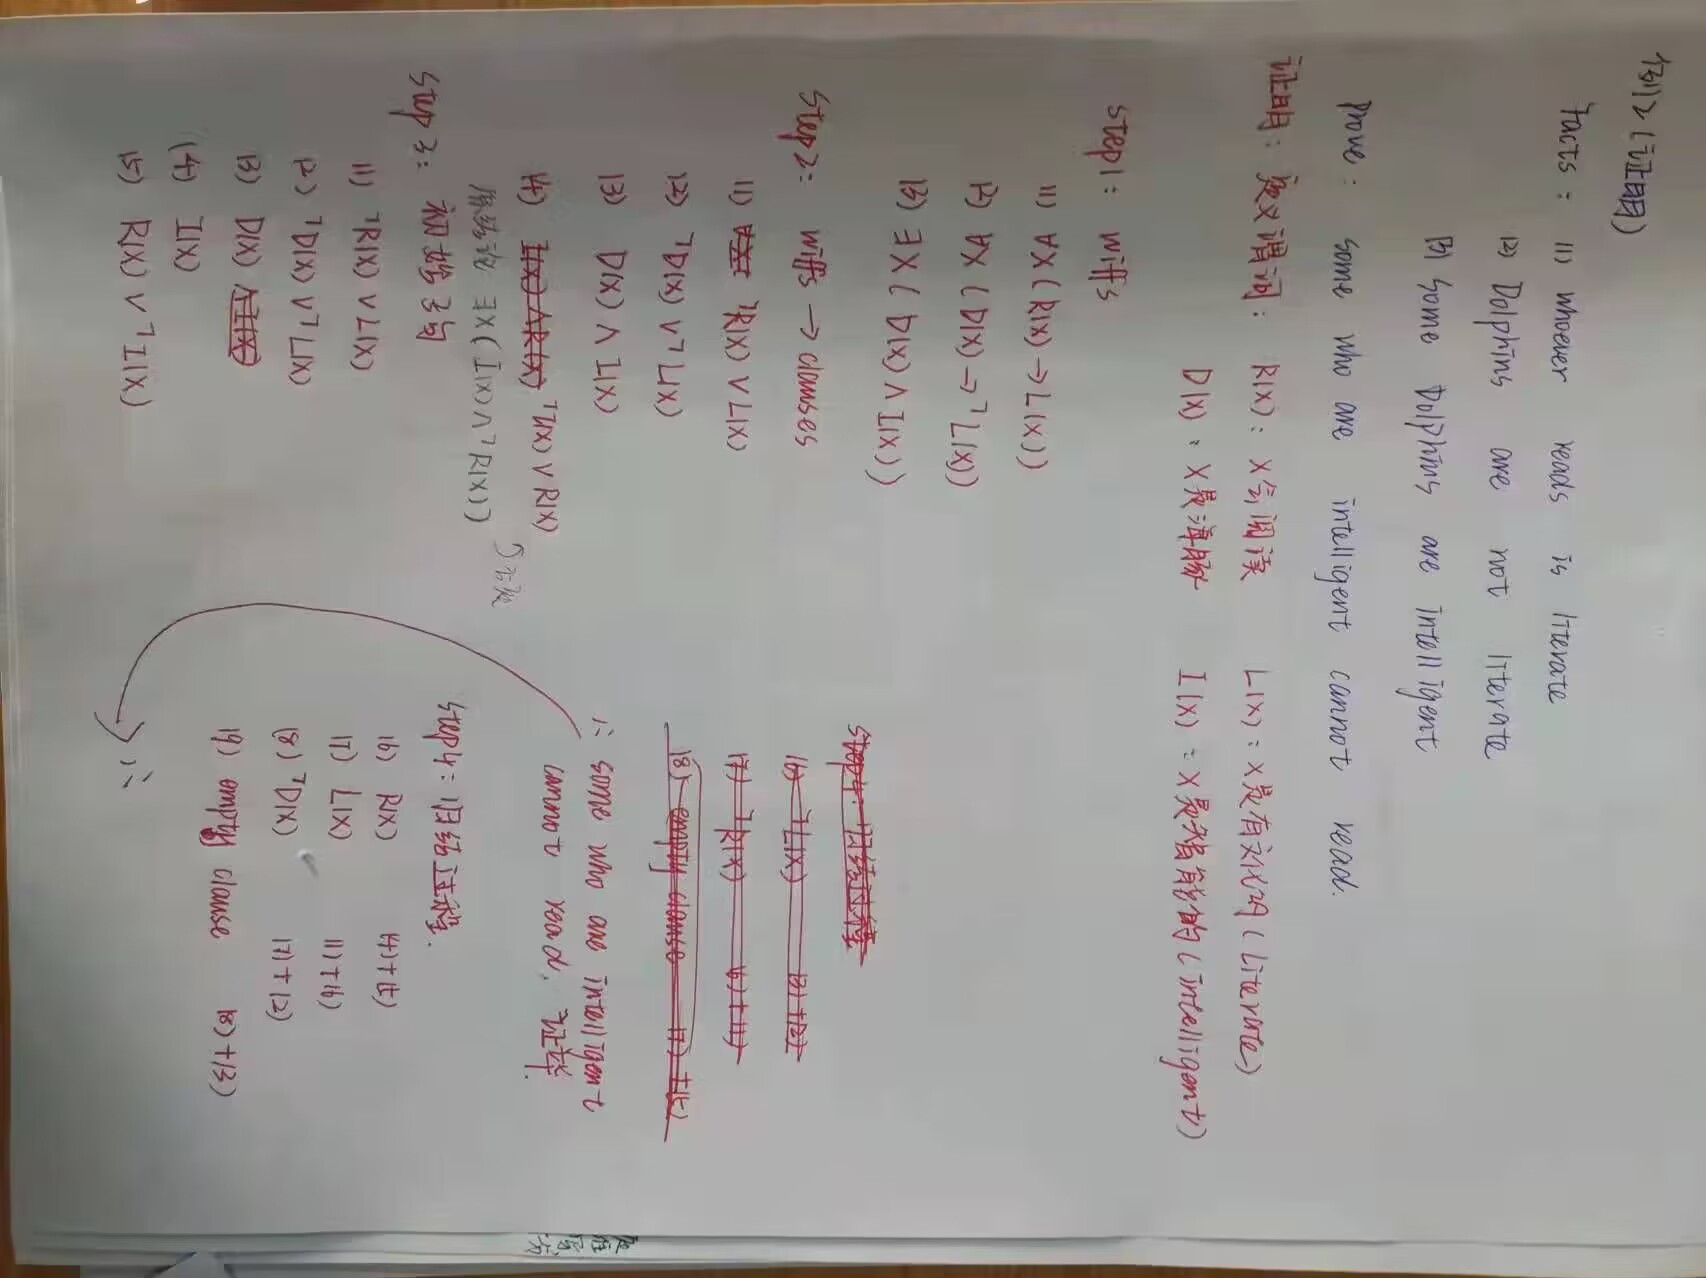 例2(证明)
Facts: (1) whoever reads is literate
(2) Dolphins are not literate
(3) Some Dolphins are intelligent
prove: some who are intelligent cannot read.
证明: 定义谓词: R(X): X会阅读 L(X): X是有文化的(Literate)
D(X): X是海豚 I(X): X是智能的(intelligent)
Step1: wiffs
(1) ∀X(R(X)→L(X))
(2) ∀X(D(X)→¬L(X))
(3) ∃X(D(X)∧I(X))
Step2: wiffs → clauses
(1) ∀X( ¬R(X)∨L(X)
(2) ¬D(X)∨¬L(X)
(3) D(X)∧I(X)
(4) I(X)∧R(X) ¬I(X)∨R(X)
原结论 ∃X(I(X)∧¬R(X)) 否定
Step3: 初始子句
(1) ¬R(X)∨L(X)
(2) ¬D(X)∨¬L(X)
(3) D(X) ∧I(X)
(4) I(X)
(5) R(X)∨¬I(X)
Step4: 归结过程
(6) ¬L(X) (3)+(2)
(7) ¬R(X) (6)+(1)
(8) empty clause (7)+(5)
∴ some who are intelligent
cannot read. 证毕.
Step4: 归结过程.
(6) R(X) (4)+(5)
(7) L(X) (1)+(6)
(8) ¬D(X) (7)+(2)
(9) empty clause (8)+(3)
∴